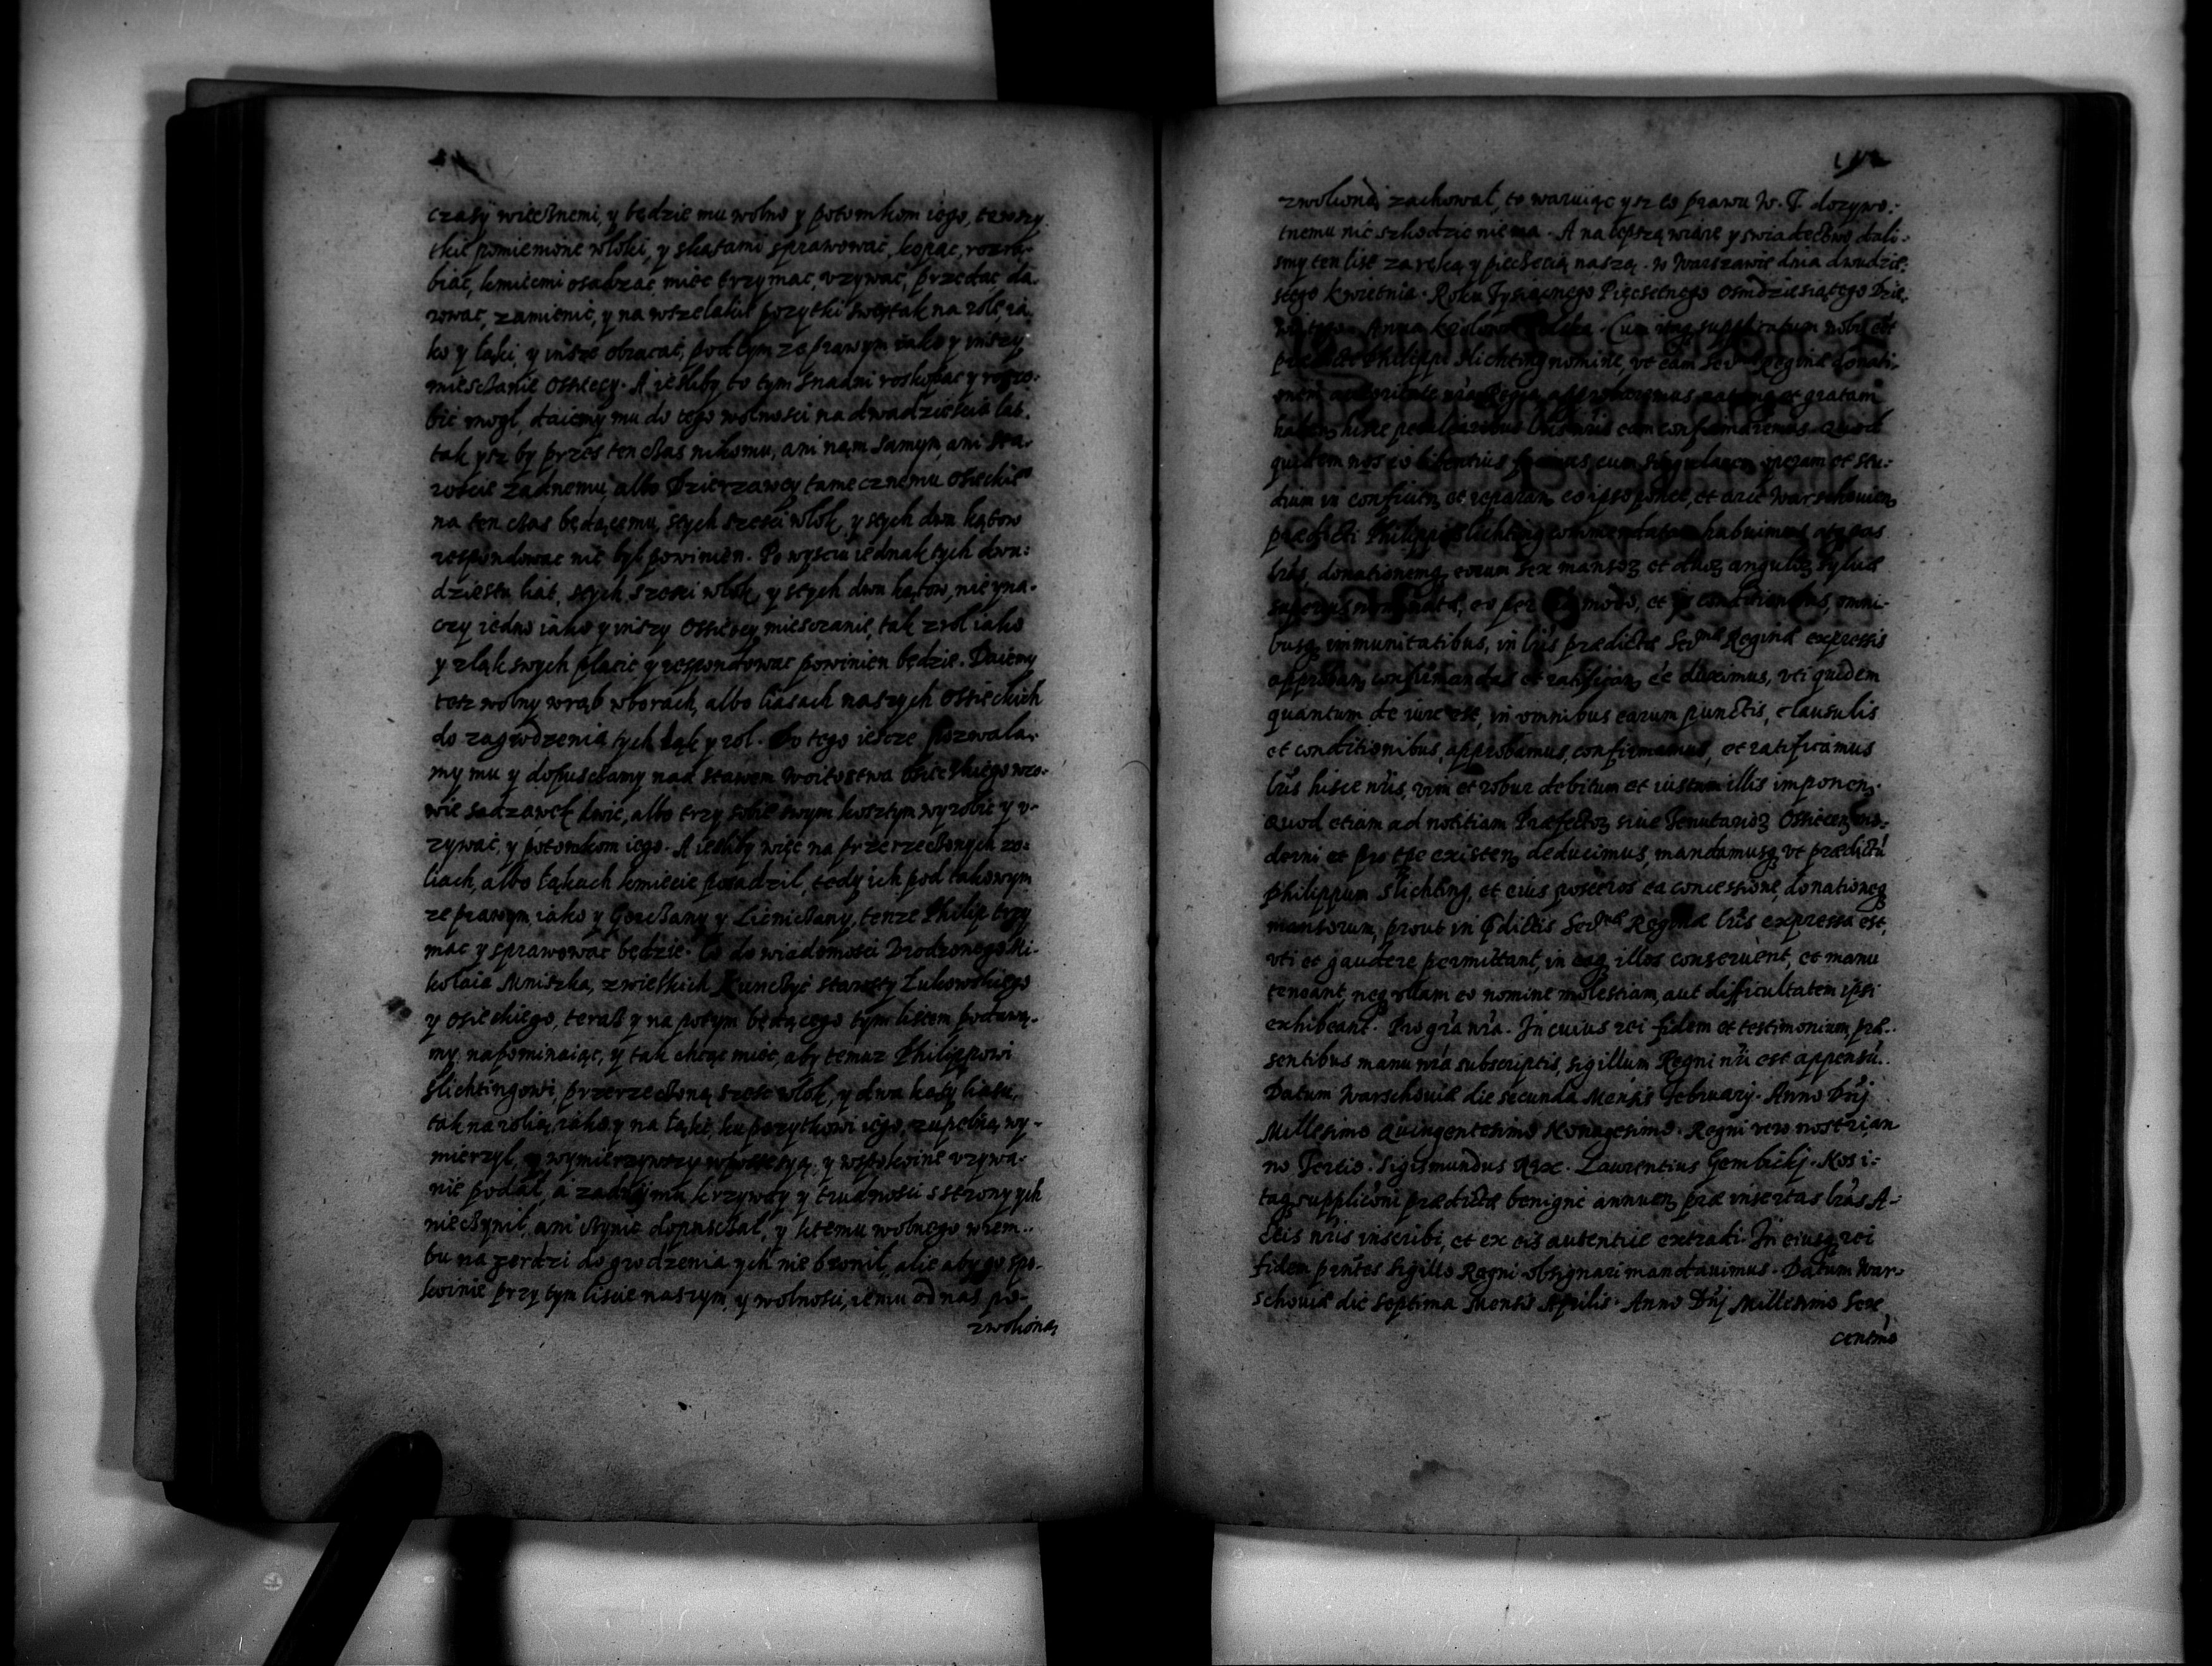 czasy wiecznemi, y będzie mu wolno y potomkom iego, te wszy
tkie pomienione włoki, y skatami sprawować, kopac, rozra-
biać, kmiećmi osadzac miec trzymac, vzywac, przedac da-
rować, zamienic, y na wszelakie pozytki swe, tak na role, ia
ko y łąki, y insze obracać, pod tym ze prawym iako y inszy
miesczanie Ossieccy. A iesliby to tym snadni roskopac y rozro-
bić mogł, daiemy mu do tego wolnosci na dwadziescia lat.
tak ysz by przes ten czas nikomu, ani nam samym ani sta-
roscie zadnemu albo Dzierzawcy tamecznemu Osieckie
na ten czas będącemu, stych szesci włok, y stych dwu kątow
respondowac nie był powinien. Po wysciu iednak tych dwu-
dziestu liat, stych szesci włok, y stych dwu kątow, nie yna-
czy iedno iako y inszy Ossieccy miesczanie, tak z rol iako
y z łąk swych płacic y respondowac powinien będzie. Daiemy
tesz wolny wrąb w borach, albo liasach naszych Ossieckich
do zagrodzenia tych łąk y rol. Do tego iescze pozwala-
my mu y dopusczamy nad stawem Woitostwa Osieckiego wro-
wie sadzawek dwie, albo trzy sobie swym kosztym wyrobic y v-
zywać, y potomkom iego. A iesliby więc na przerzeczonych ro-
liach, albo łąkach kmiecie posadził, tedy ich pod takowym
ze prawym iako y Gorczany y Lieniczany, tenze Philip trzy
mac y sprawować będzie. Co do wiadomosci Vrodzonego Mi-
kołaia Mniszka, z wielkich Kunczyc starosty Łukowskiego
y Osieckiego, teraz y na potym będącego tym listem podawa-
my, napominaiąc, y tak chcąc miec, aby temuz Philippowi
Slichtingowi, przerzeczoną szesc włok, y dwa kąty liasu,
tak na rolią, iako y na łąki, ku pozytkowi iego, zupełną wy-
mierzył, y wymierzywszy w possesyą, y w spokoine vzywa-
nie podał, a zadnei mu krzywdy y trudnosci s strony ych
nie czynił, ani czynic dopusczał, y k temu wolnego wrem-
bu na zerdzi do grodzenia ych nie bronił, alie aby go spo-
koinie przy tym liscie naszym, y wolnosci, iemu od nas po-
zwoliona,
zwoliona, zachował, to waruiąc ysz to prawu W. T. dozywo-
tnemu nic szkodzic nie ma. A na liepszą wiarę y swiadectwo dali-
smy ten list za ręką y pieczecią naszą. W Warszawie dnia dwudzie-
stego Kwietnia. Roku Tysiącnego Pięcsetnego Osmdziesiątego Dzie-
wiątego. Anna Krolowa Polska. Cum itaq supplicatum nobis est
prædicti Philippi Slichting nomine, vt eam Serᵐᵃᵉ Reginæ donati-
onem authoritate nrã Regia approbaremus ratamq et gratam
haben hisce peculiaribus lris nris eam confirmaremus. Quod
quidem nos eo libentius facimus, cum singularem operam et stu-
dium in conficien et reparan eo ipso ponte, et arce Warschouien
prædicti Philippi Slichting commendatam habuimus atq eas
lras, donationemq eorum sex mansoꝝ et duoꝝ anguloꝝ syluæ
superius nominatæ, eo per modo, et conditionibus, omni-
busq immunitatibus, in lris prædictæ Serᵐᵃᵉ Reginæ expressis
approban confirmandas et ratifican ee duximus, vti quidem
quantum de iure est, in omnibus earum punctis, clausulis
et conditionibus, approbamus, confirmamus, et ratificamus
lris hisce nris, vim et robur debitum et iustum illis imponen.
Quod etiam ad notitiam Præfectoꝝ siue Tenutarioꝝ Ossiecen mo-
derni et pro tpe existen deducimus, mandamusq vt prædictũ
Philippum Slichting, et eius posteros ea concessione, donationeq
mansorum, prout in p̃dictis Serᵐᵃᵉ Reginæ lris expressa est,
vti et gaudere permittant, in eaq illos conseruent, et manu
teneant, neq vllam eo nomine molestiam, aut difficultatem ipsi
exhibeant. Pro grã nrã. In cuius rei fidem et testimonium, præ-
sentibus manu nrã subscriptis, sigillum Regni nri est appensũ.
Datum Warschouiæ die secunda Mensis February. Anno Dñj
Millesimo Quingentesimo Nonagesimo. Regni vero nostri an
no Tertio. Sigismundus Rex. Laurentius Gembickj. Nos i-
taq supplicõni prædictæ benigne annuen, præ insertas lras A-
ctis nris inscribi, et ex eis autentice extradi. In cuius rei
fidem pñtes Sigillo Regni obsignari mandauimus. Datum War-
schouiæ die Septima Mensis Aprilis. Anno Dñj Millesimo Sex
centmo